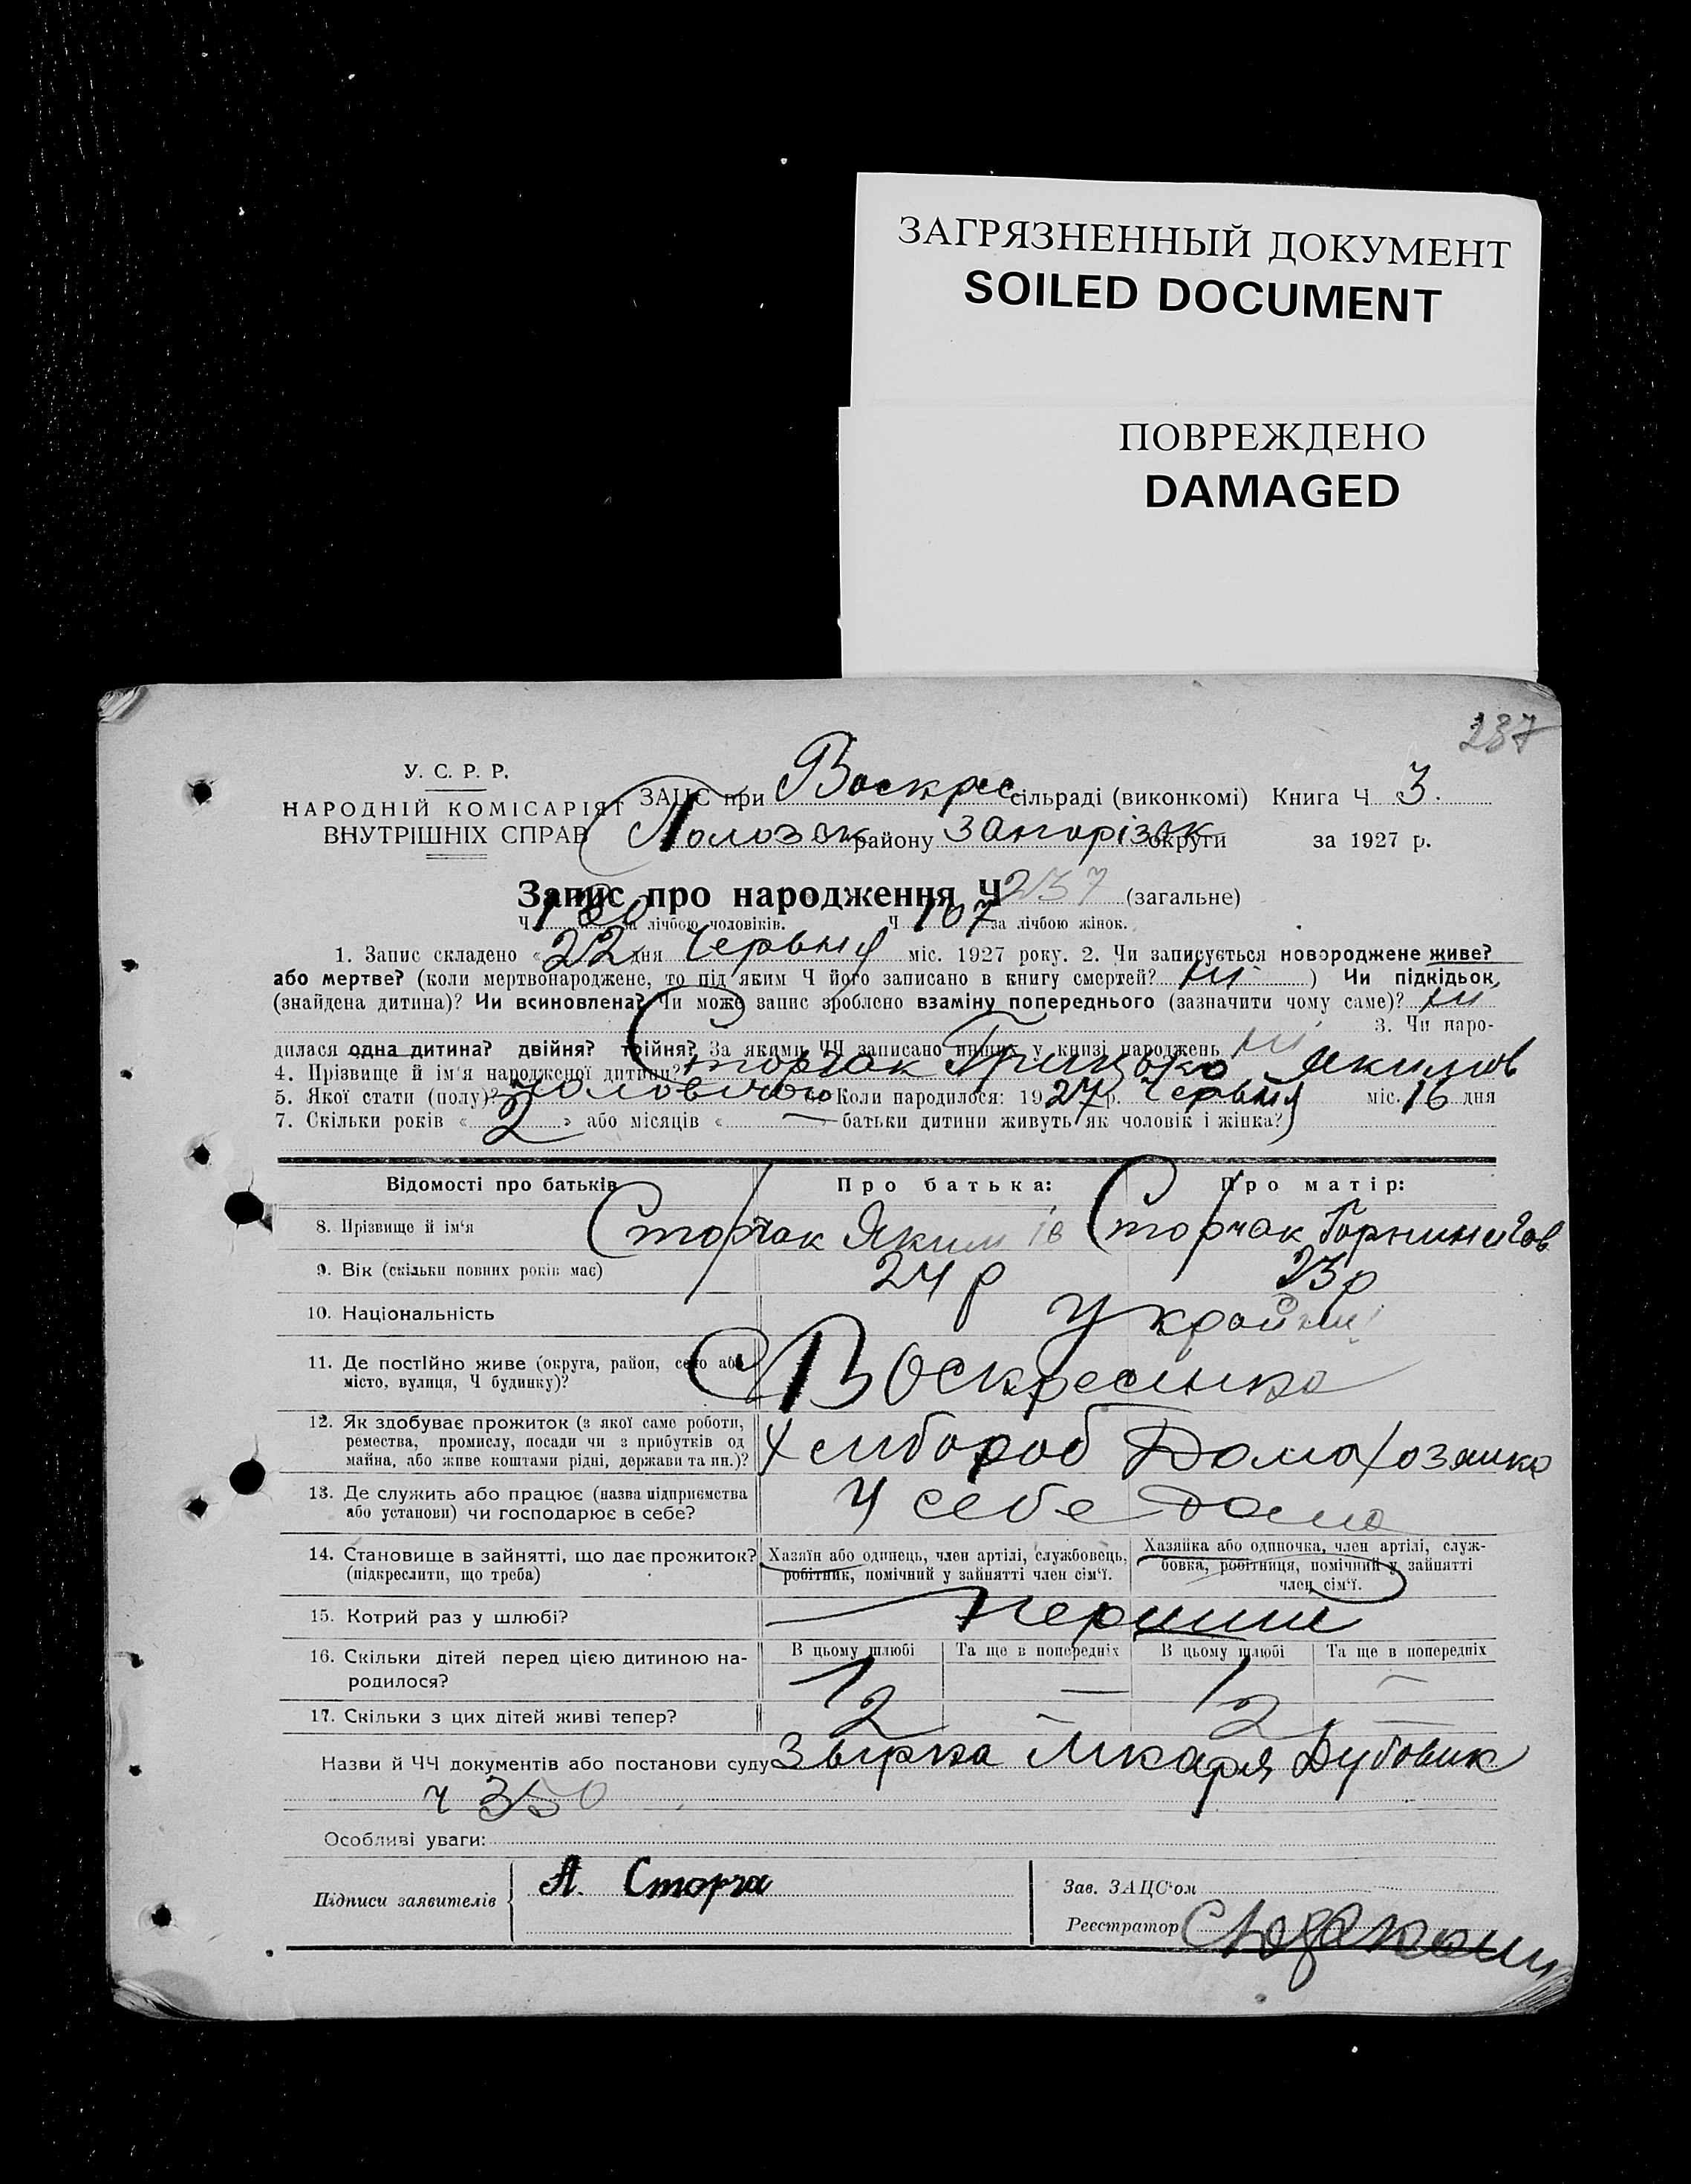 ЗАГРЯЗНЕННЫЙ ДОКУМЕНТ
SOILED DOCUMENT
ПОВРЕЖДЕНО
DAMAGED
237
У. С. Р. Р.
НАРОДНІЙ КОМІСАРІЯТ
ВНУТРІШНІХ СПРАВ
ЗАЦС при Воскрес сільраді (виконкомі) Книга Ч 3.
Пологзьк району Запорізьк округи за 1927 р.
Запис про народження Ч 237 (загальне)
Ч 130 за лічбою чоловіків. Ч 107 за лічбою жінок.
1. Запис складено « 22 дня Червня міс. 1927 року. 2. Чи записується новороджене живе?
або мертве? (коли мертвонароджене, то під яким Ч його записано в книгу смертей? ні ) Чи підкідьок,
(знайдена дитина)? Чи всиновлена? Чи може запис зроблено взаміну попереднього (зазначити чому саме)? ні
3. Чи наро-
дилася одна дитина? двійня? трійня? За якими ЧЧ записано инших у книзі народжень ні
4. Прізвище й ім'я народженої дитини? Сторчак Грицько Якимов
5. Якої стати (полу)? чоловічою Коли народилося: 1927 р. Червня міс. 16 дня
7. Скільки років « 2 » або місяців « — » батьки дитини живуть як чоловік і жінка?
Відомості про батьків Про батька: Про матір:
8. Прізвище й ім'я Сторчак Яким Сторчак
9. Вік (скільки повних років має) 24 р 23 р
10. Національність Україн
11. Де постійно живе (округа, район, село або
місто, вулиця, Ч будинку)? Воскресинка
12. Як здобуває прожиток (з якої саме роботи,
ремества, промислу, посади чи з прибутків од
майна, або живе коштами рідні, держави та ин.)? Хлибороб Домахозяйка
13. Де служить або працює (назва підприємства
або установи) чи господарює в себе? У себе дома
14. Становище в зайнятті, що дає прожиток?
(підкреслити, що треба)
Хазяїн або одинець, член артілі, службовець,
робітник, помічний у зайнятті член сім'ї.
Хазяйка або одиночка, член артілі, служ-
бовка, робітниця, помічний у зайнятті
член сім'ї.
15. Котрий раз у шлюбі? первий
В цьому шлюбі Та ще в попередніх В цьому шлюбі Та ще в попередніх
16. Скільки дітей перед цією дитиною на-
родилося? 1 — 1 —
17. Скільки з цих дітей живі тепер? 2 — 2 —
Назви й ЧЧ документів або постанови суду Звирка Лікаря Дубовик
ч 350
Особливі уваги:
Підписи заявителів А. Сторча
Зав. ЗАЦС'ом
Реєстратор